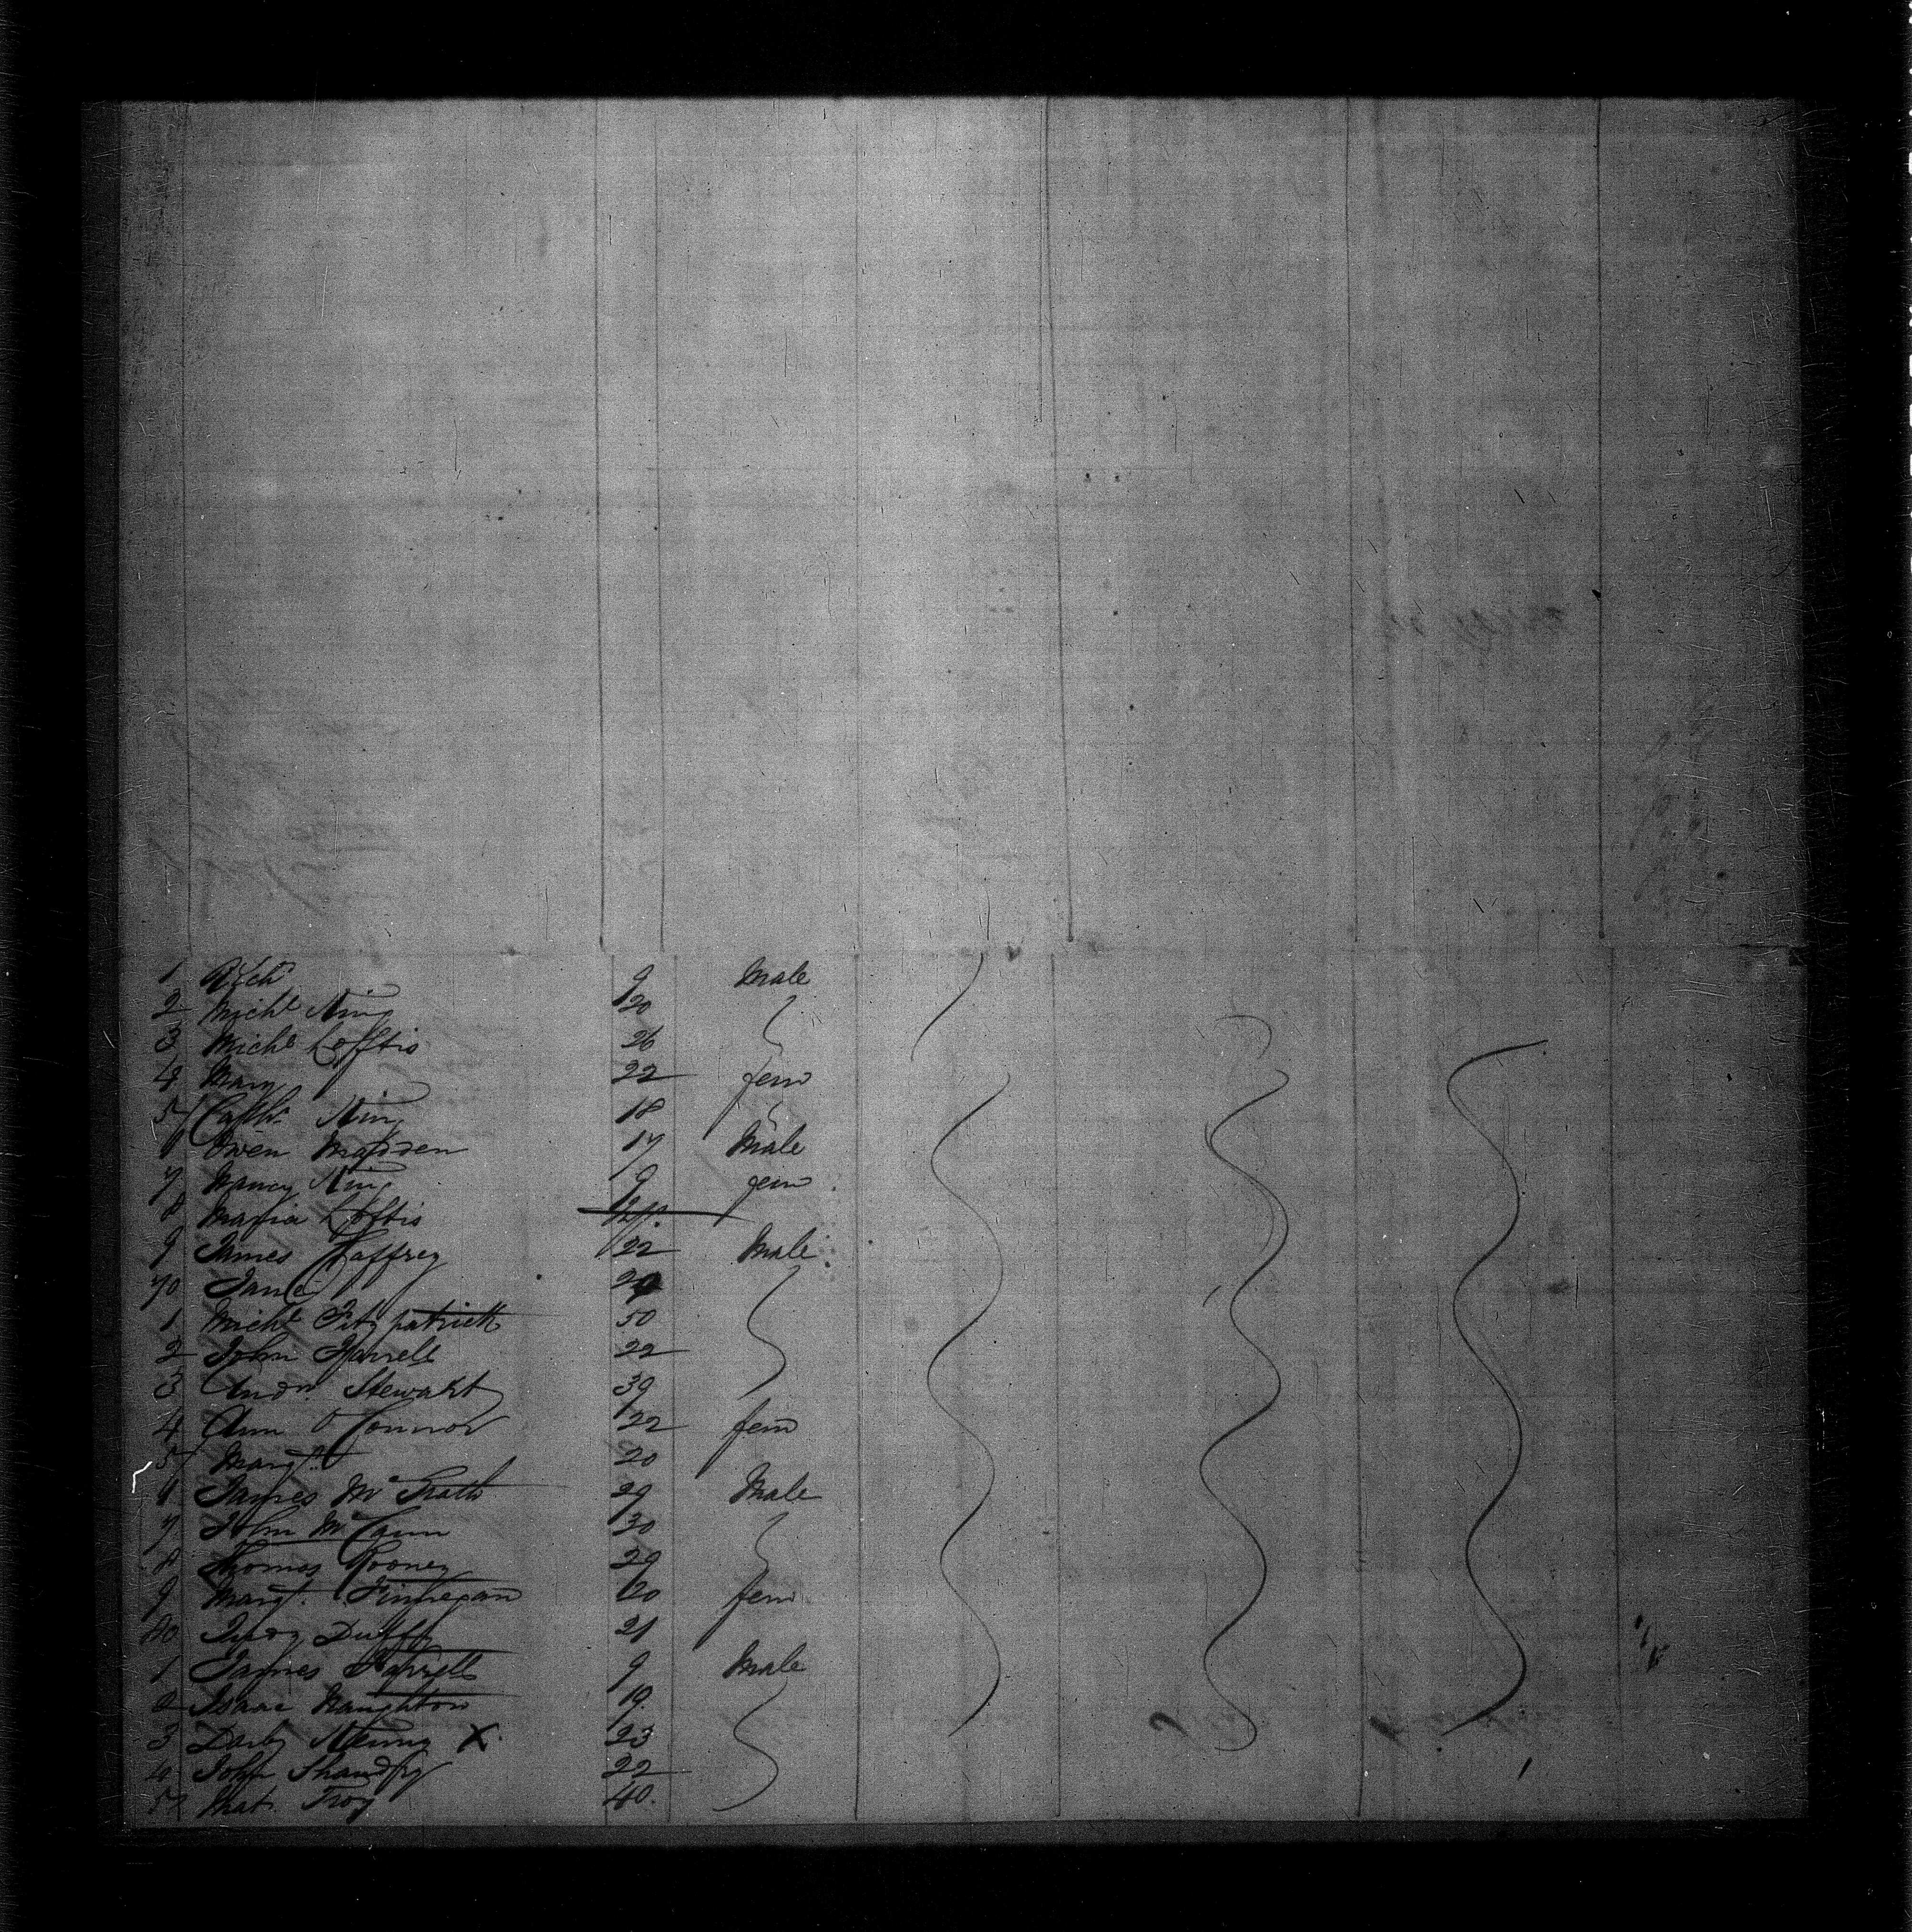 1 Rich 9 Male
2 Michl King 20
3 Michl Loftis 26
4 Mary 22 fem
5 Cath. King 18
6 Owen Madden 17 Male
7 Nancy King 9 fem
8 Maria Loftis
9 James Caffrey 22 Male
70 Jane
1 Michl Fitzpatrick 50
2 John Farrell 22
3 Andw Stewart 39
4 Ann O Connor 22 fem
5 Margt 20
6 James Mc Grath 29 Male
7 John Mc Cann 30
8 Thomas Rooney 29
9 Margt. Finnegan 20 fem
80 Judy Duffy 21
1 James Farrell 9 Male
2 Isaac Naughton 19
3 Darby X 23
4 John 22
5 Pat. Troy 40.